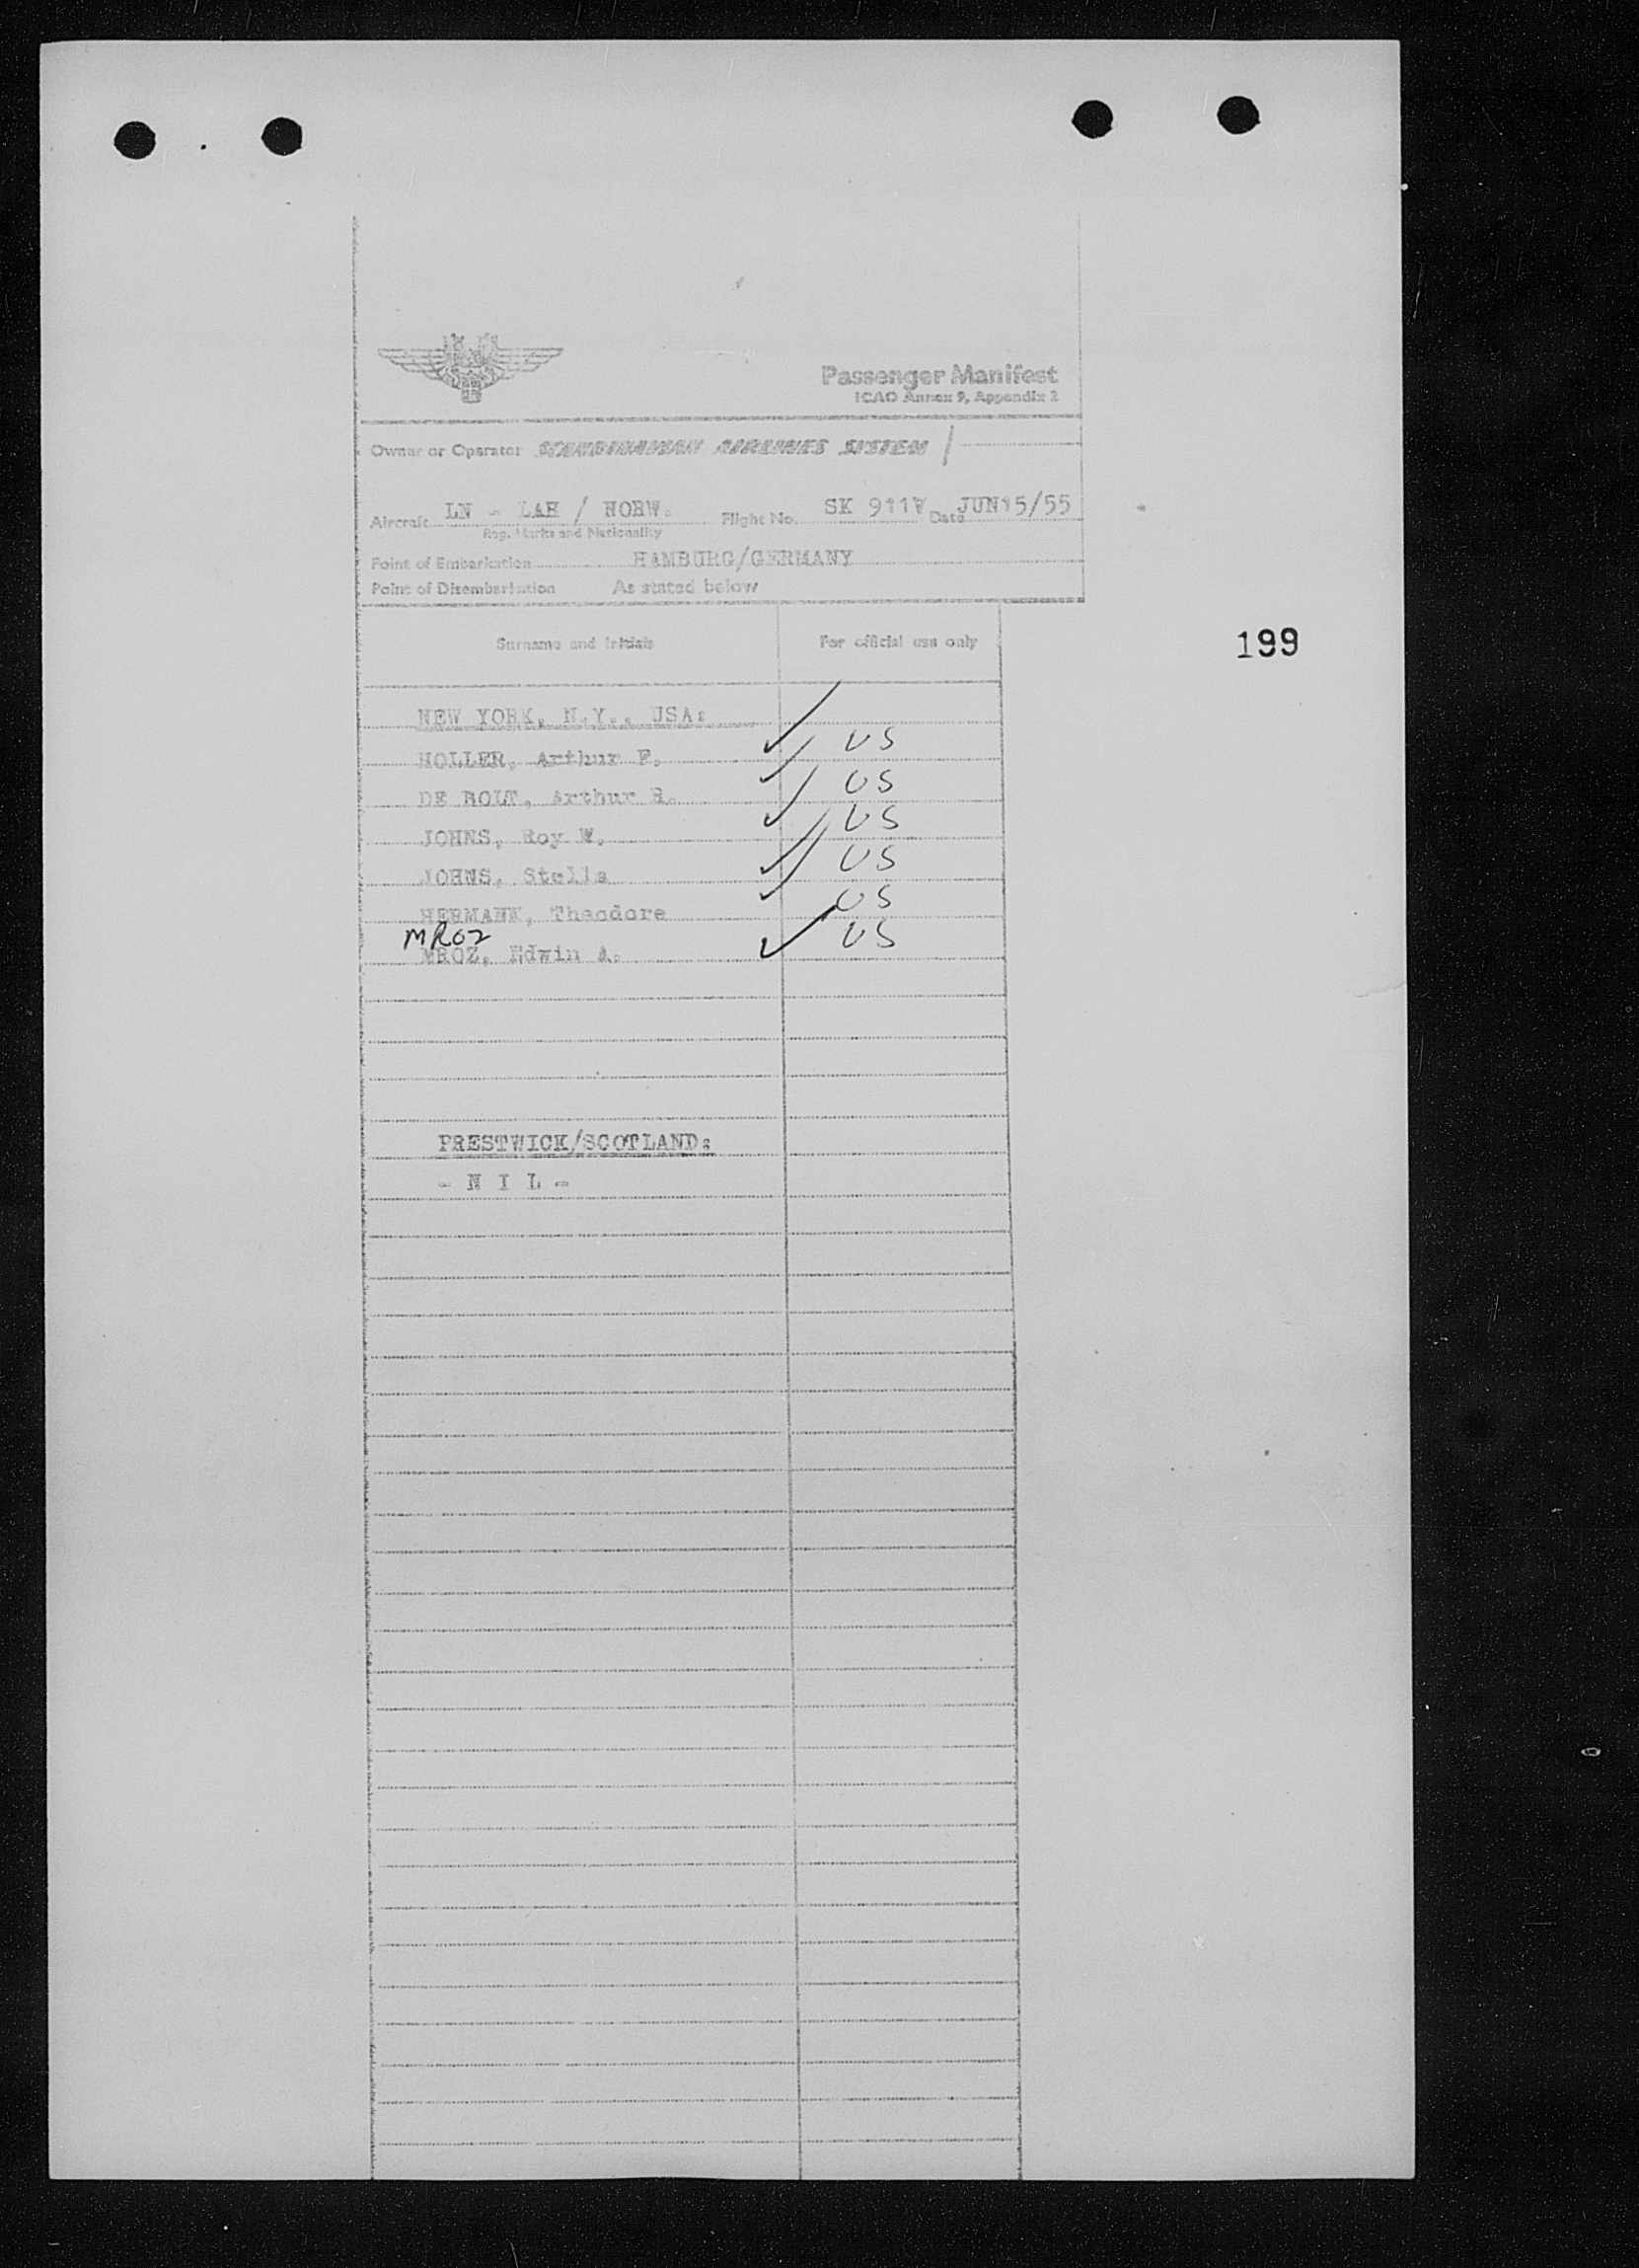 Passenger Manifest
ICAO Annex 9, Appendix 2
Owner or Operator SCANDINAVIAN AIRLINES SYSTEM
Aircraft LN - LAH / NORW. Flight No. SK 911V Date JUN15/55
Reg. Marks and Nationality
Point of Embarkation HAMBURG/GERMANY
Point of Disembarkation As stated below
Surname and Initials For official use only
199
NEW YORK, N.Y., USA:
Arthur F. US
DE BOLT, Arthur US
JOHNS, Roy W. US
JOHNS, Stella US
HERMANN, Theodore US
MROZ
MROZ, Edwin A. US
PRESTWICK/SCOTLAND:
- N I L -